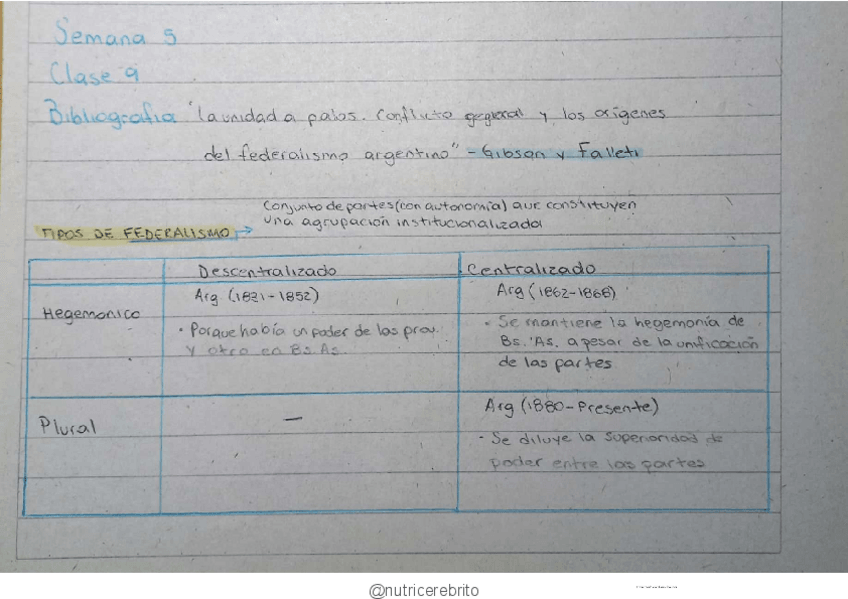 Semana 5
Clase 9
Bibliografia "la unidad a palos. Conflicto regional y los orígenes
del federalismo argentino" - Gibson y Falleti
Conjunto de partes (con autonomía) que constituyen
una agrupación institucionalizada
TIPOS DE FEDERALISMO →
Descentralizado Centralizado
Hegemonico
Arg (1831-1852)
• Porque había un poder de las prov.
y otro en Bs.As.
Arg (1862-1868)
- Se mantiene la hegemonía de
Bs. As. a pesar de la unificación
de las partes
Plural
—
Arg (1880-Presente)
- Se diluye la superioridad de
poder entre las partes
@nutricerebrito